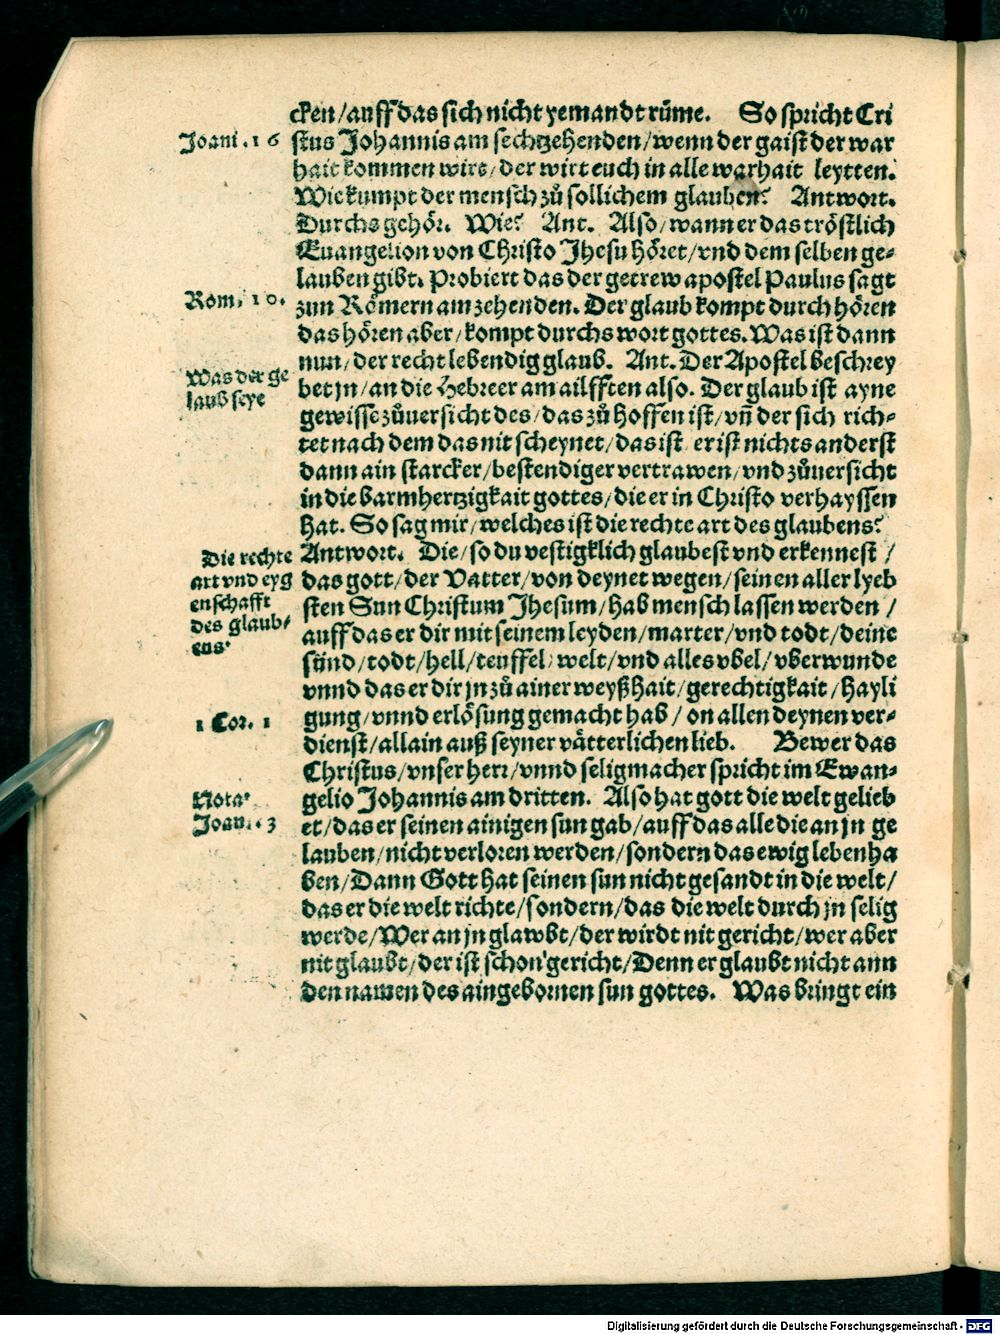 cken/auff das sich nicht yemandt růme. So spricht Cri
Joani. 16
stus Johannis am sechtzehenden/wenn der gaist der war
hait kommen wirt/der wirt euch in alle warhait leytten.
Wie kumpt der mensch zů sollichem glauben? Antwort.
Durchs gehör. Wie? Ant. Also/wann er das tröstlich
Euangelion von Christo Jhesu höret/vnd dem selben ge-
lauben gibt. Probiert das der getrew apostel Paulus sagt
Rom. 10.
zun Römern am zehenden. Der glaub kompt durch hören
das hören aber/kompt durchs wort gottes. Was ist dann
nun/der recht lebendig glaub. Ant. Der Apostel beschrey
Was der ge
laub seye
bet jn/an die Hebreer am ailfften also. Der glaub ist ayne
gewisse zůuersicht des/das zů hoffen ist/vn̄ der sich rich-
tet nach dem das nit scheynet/das ist er ist nichts anderst
dann ain starcker/bestendiger vertrawen/vnd zůuersicht
in die barmhertzigkait gottes/die er in Christo verhayssen
hat. So sag mir/welches ist die rechte art des glaubens?
Die rechte
art vnd eyg
enschafft
des glaub/
ens.
Antwort. Die/so du vestigklich glaubest vnd erkennest/
das gott/der Vatter/von deynet wegen/seinen aller lyeb
sten Sun Christum Jhesum/hab mensch lassen werden/
auff das er dir mit seinem leyden/marter/vnd todt/deine
sünd/todt/hell/teuffel/welt/vnd alles vbel/vberwunde
vnnd das er dir jn zů ainer weyßhait/gerechtigkait/hayli
1 Cor. 1
gung/vnnd erlösung gemacht hab/on allen deynen ver-
dienst/allain auß seyner vätterlichen lieb. Bewer das
Christus/vnser herr/vnnd seligmacher spricht im Ewan-
Nota.
Joan. 3
gelio Johannis am dritten. Also hat gott die welt gelieb
et/das er seinen ainigen sun gab/auff das alle die an jn ge
lauben/nicht verloren werden/sondern das ewig leben ha
ben/Dann Gott hat seinen sun nicht gesandt in die welt/
das er die welt richte/sondern/das die welt durch jn selig
werde/Wer an jn glawbt/der wirdt nit gericht/wer aber
nit glaubt/der ist schon gericht/Denn er glaubt nicht ann
den namen des aingebornen sun gottes. Was bringt ein
Digitalisierung gefördert durch die Deutsche Forschungsgemeinschaft - DFG